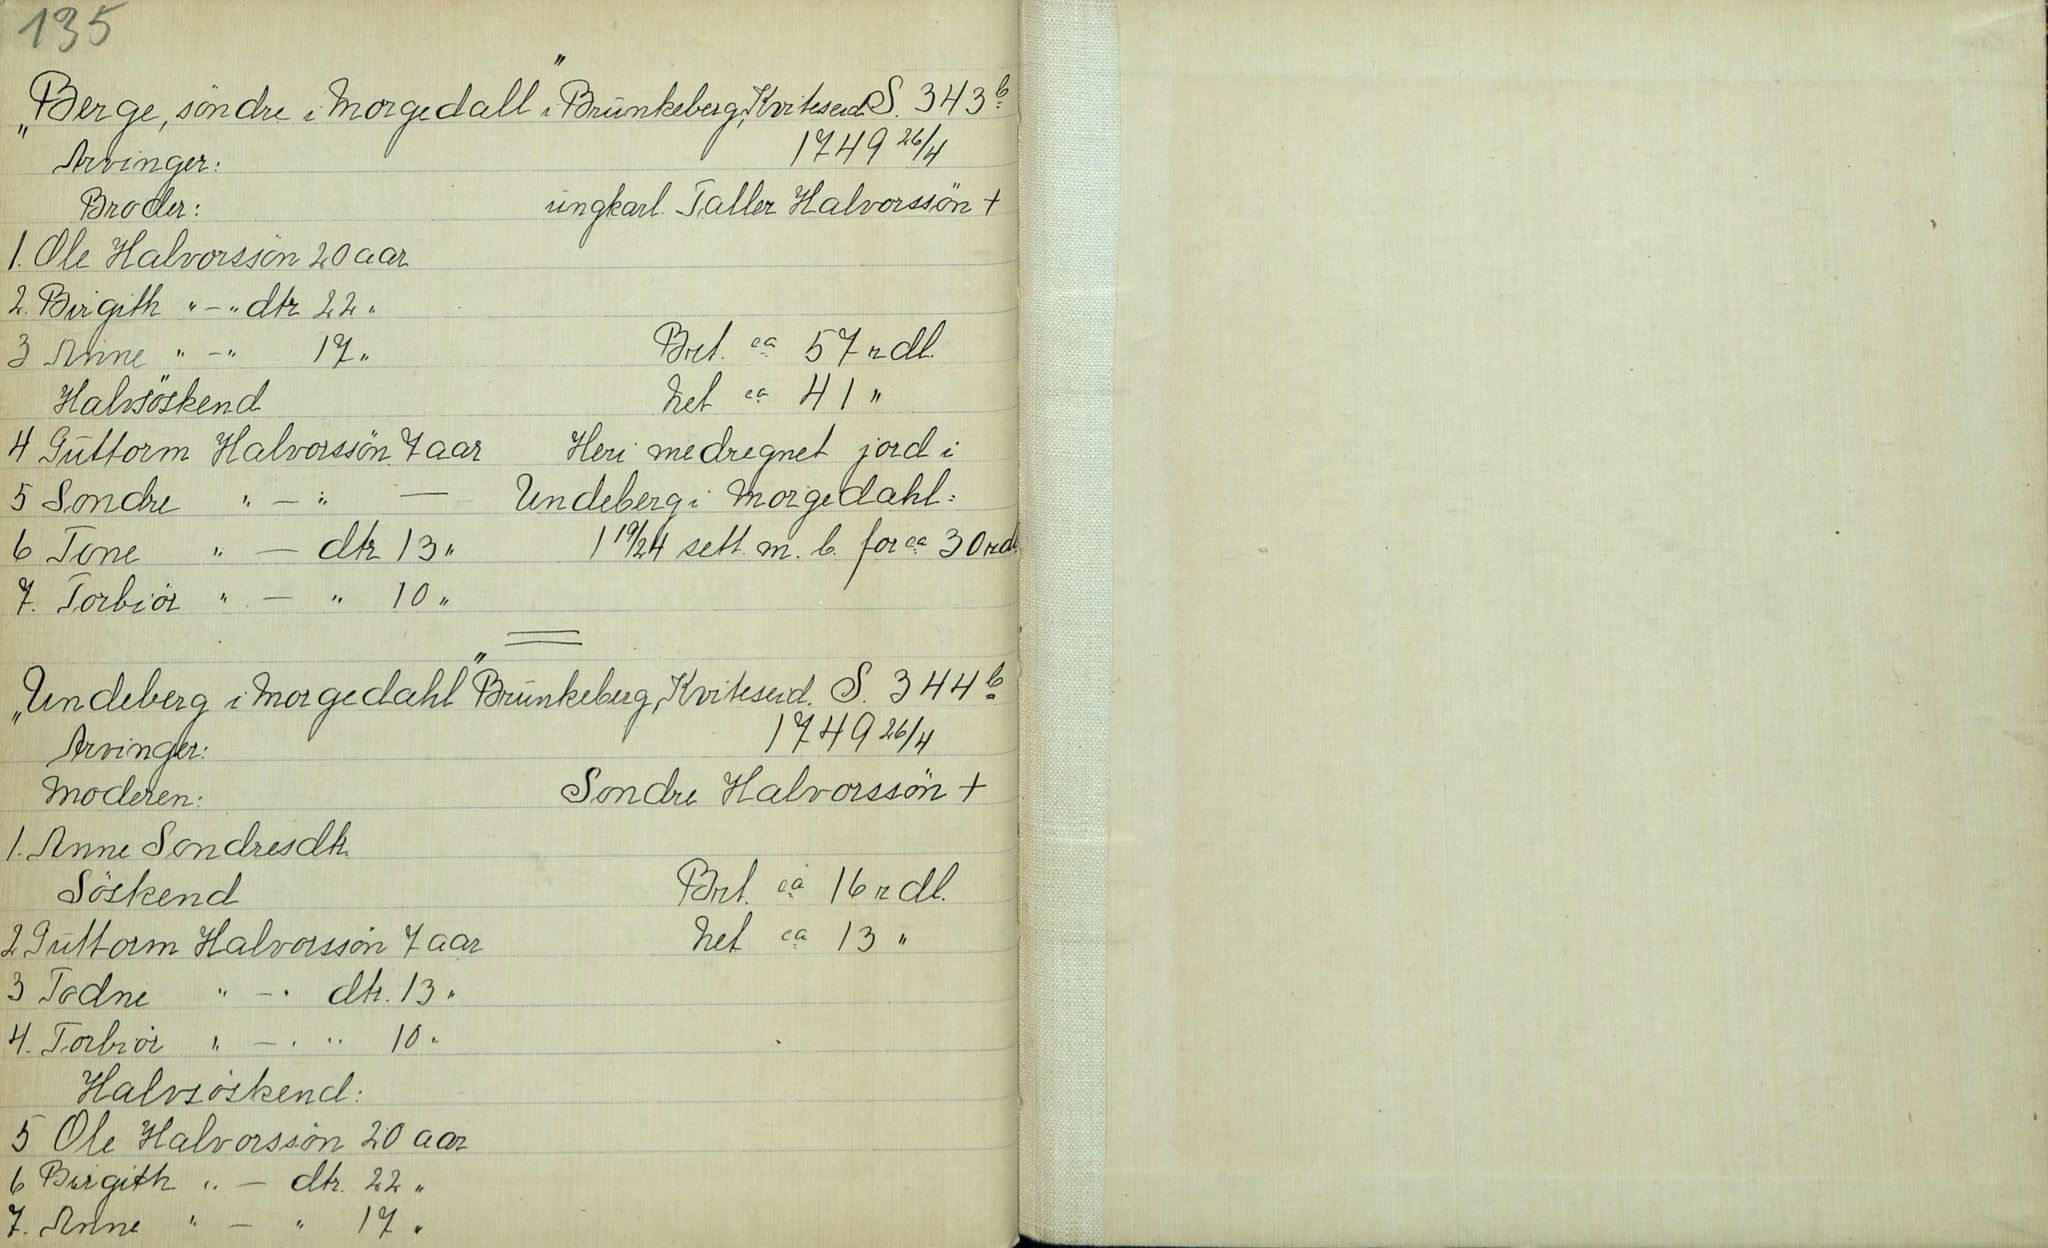 135
„Berge, söndre i Morgedall" i Brunkeberg, Kviteseid S. 343b
Arvinger: 1749 26/4
Broder: ungkarl. Taller Halvorssön +
1. Ole Halvorssön 20 aar
2. Birgith " – " dtr 22 "
3 Anne " – " 17 "    Brt. ca 57 rdl.
Halvsöskend    Net ca 41 "
4 Guttorm Halvorssön 7 aar    Heri medregnet jord i
5 Sondre " – " —    Undeberg i Morgedahl:
6 Tone " — dtr 13 "    1 19/24 sett. m. b. for ca 30 rd.
7. Torbiör " — " 10 "
„Undeberg i Morgedahl" Brunkeberg, Kviteseid. S. 344b
Arvinger: 1749 26/4
Moderen: Sondre Halvorssön +
1. Anne Sondresdtr.
Söskend    Brt. ca 16 rdl.
2 Guttorm Halvorssön 7 aar    Net ca 13 "
3 Todne " – " dtr. 13 "
4. Torbiör " – " " 10 "
Halvsöskend:
5 Ole Halvorssön 20 aar
6 Birgith " — dtr. 22 "
7. Anne " — " 17 "